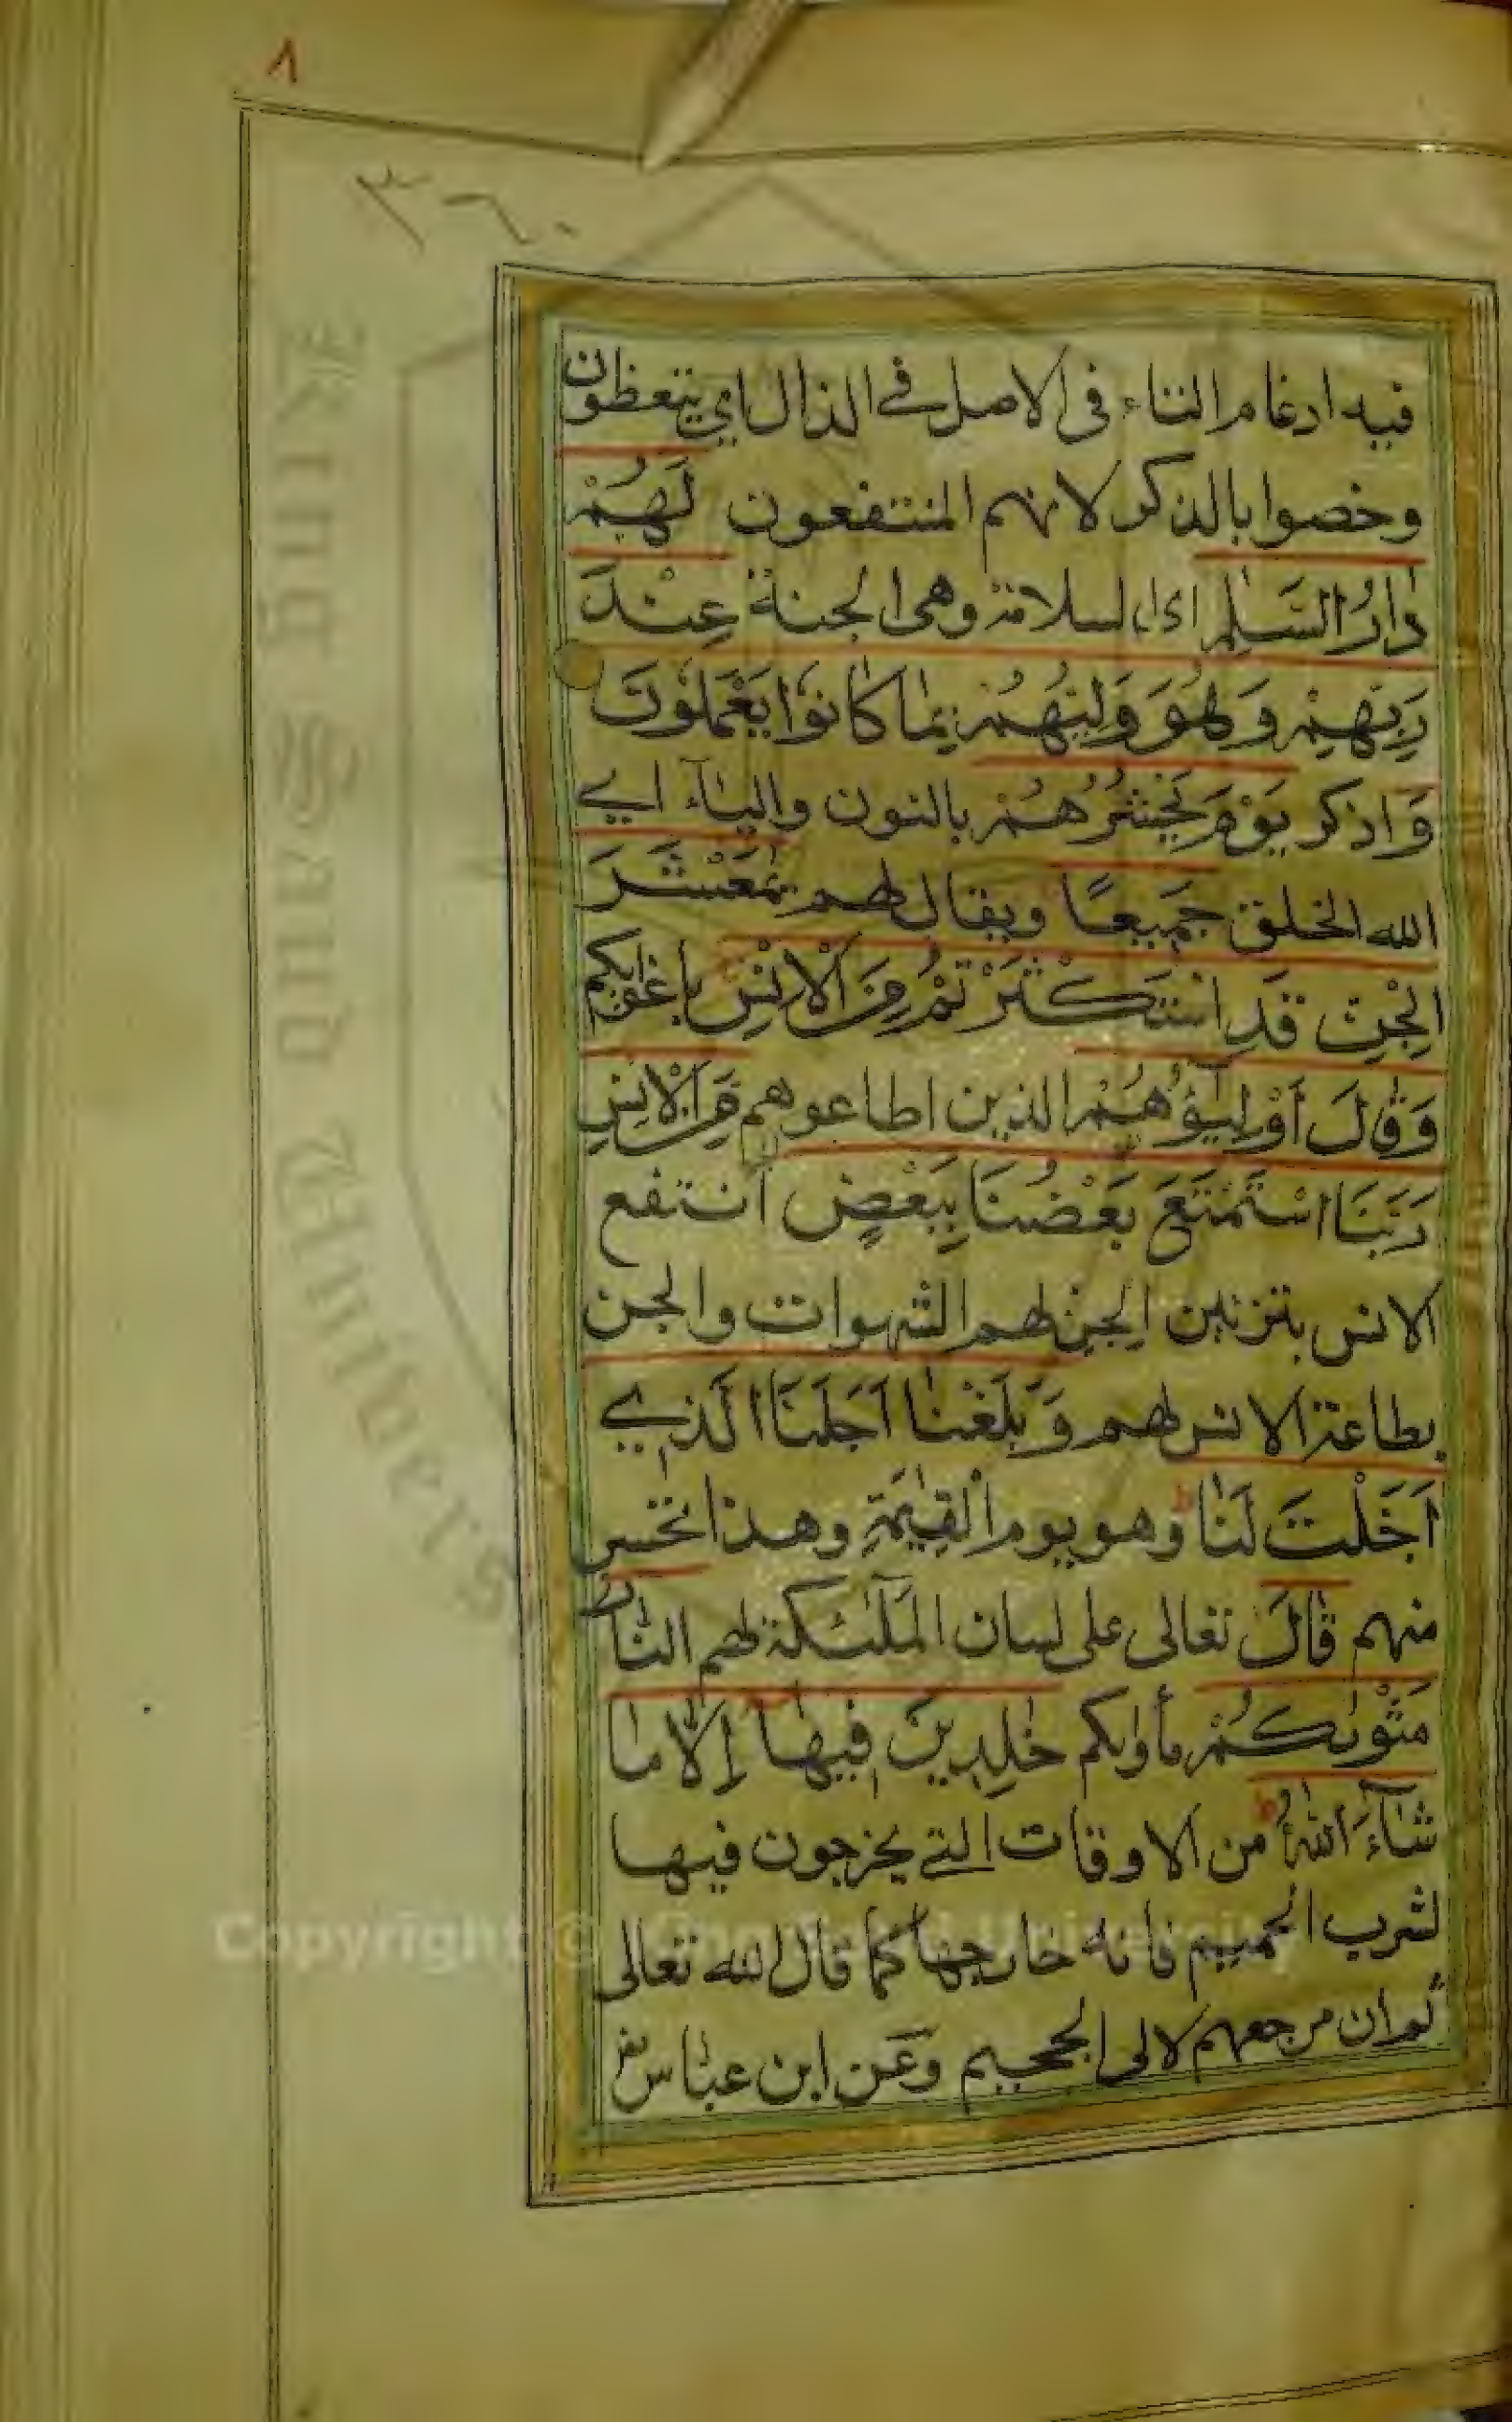 ٨
٣٦٠
فيه ادغام التاء في الاصل في الذال اي يتعظون
وخصوا بالذكر لانهم المنتفعون لَهُمْ
دَارُ السَّلٰمِ اى السلامة وهى الجنة عِنْدَ
رَبِّهِمْ وَهُوَ وَلِيُّهُمْ بِمَا كَانُوا يَعْمَلُونَ
وَاذكر يَوْمَ نَحْشُرُهُمْ بالنون والياء اي
الله الخلق جَمِيعًا ويقال لهم يٰمَعْشَرَ
الْجِنِّ قَدِ اسْتَكْثَرْتُمْ مِنَ الْاِنْسِ باغوائكم
وَقَالَ أَوْلِيٰٓؤُهُمْ الذين اطاعوهم مِنَ الْاِنْسِ
رَبَّنَا اسْتَمْتَعَ بَعْضُنَا بِبَعْضٍ انتفع
الانس بتزيين الجن لهم الشهوات والجن
بطاعة الانس لهم وَبَلَغْنَا اَجَلَنَا الَّذِي
اَجَّلْتَ لَنَا وهو يوم الْقِيٰمَةِ وهذا تحسر
منهم قَالَ تعالى على لسان الملٰئكة لهم النار
مَثْوٰىكُمْ مأواكم خٰلِدِينَ فِيهَا اِلَّا مَا
شَآءَ اللّٰهُ من الاوقات التي يخرجون فيها
لشرب الحميم فانه خارجها كما قال الله تعالى
ثم ان مرجعهم لالى الجحيم وعن ابن عباس
King Saud University
Copyright © King Saud University